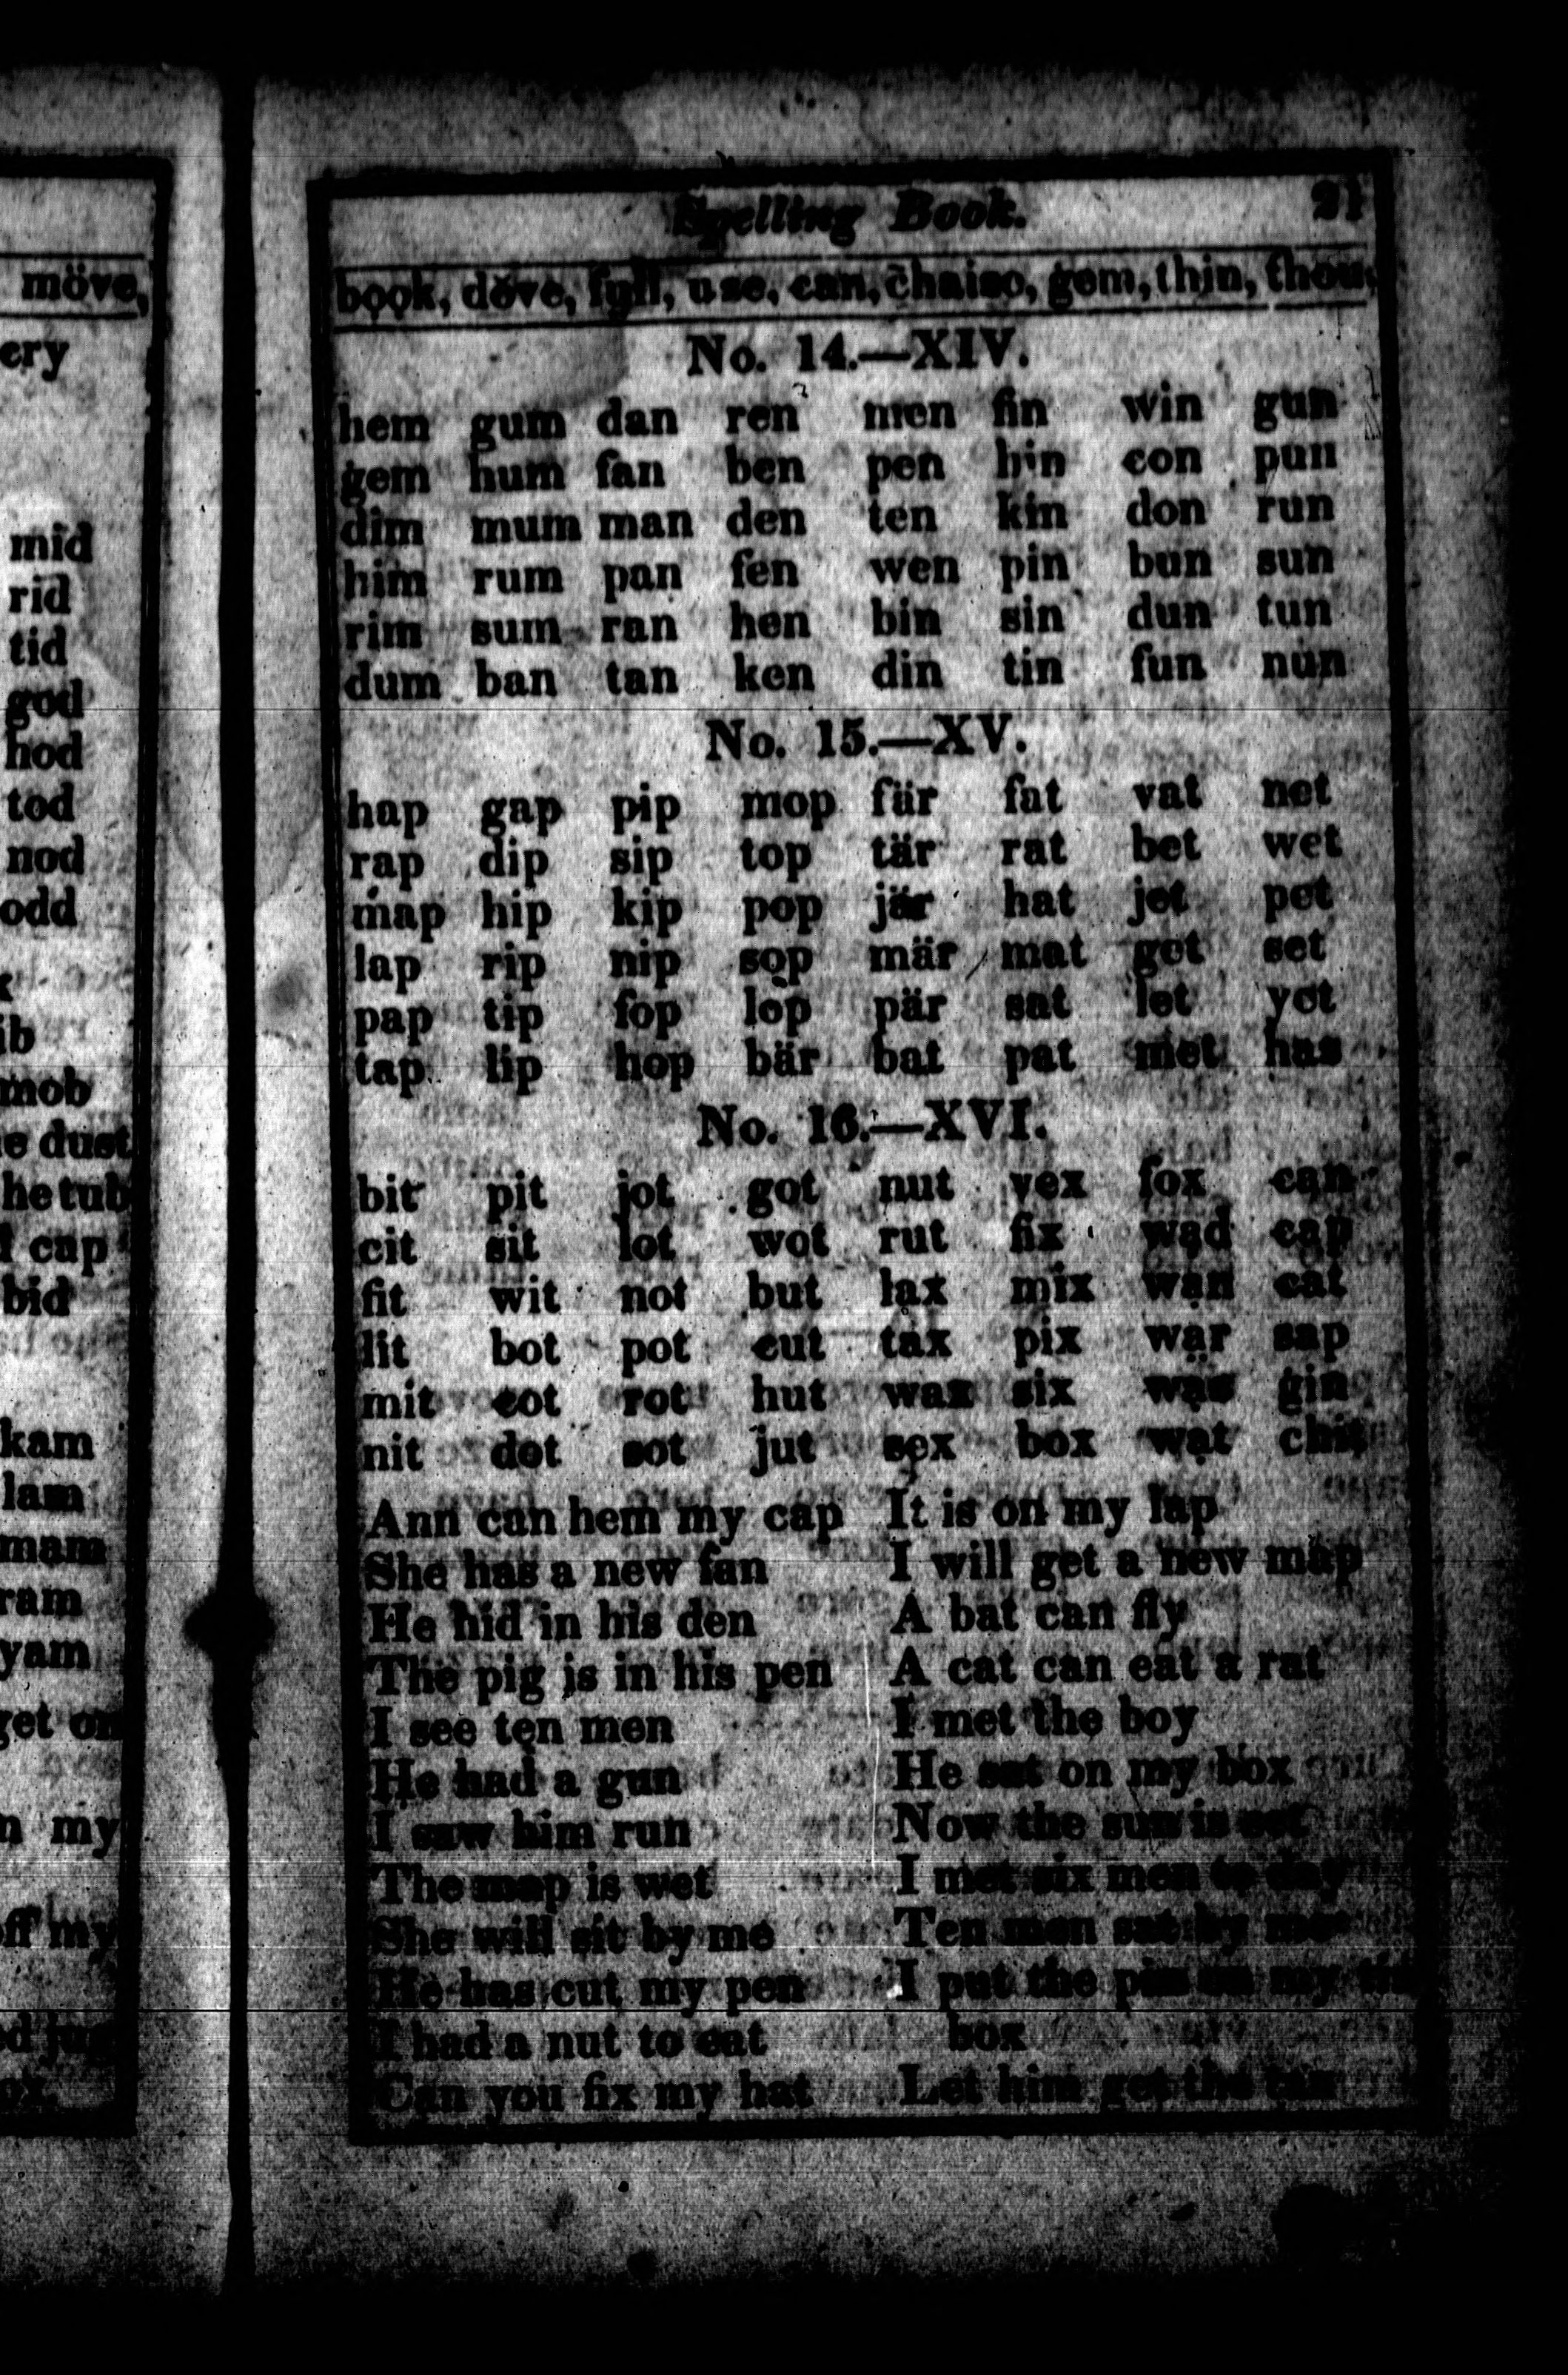 möve,
cry
mid
rid
tid
god
hod
tod
nod
odd
ib
mob
e dust
he tub
cap
bid
kam
lam
mam
ram
yam
get on
my
off my
jug
Spelling Book. 21
book, dove, full, use, can, chaise, gem, thin, thou.
No. 14.—XIV.
hem gum dan ren men fin win gun
gem hum fan ben pen hin con pun
dim mum man den ten kin don run
him rum pan fen wen pin bun sun
rim sum ran hen bin sin dun tun
dum ban tan ken din tin fun nun
No. 15.—XV.
hap gap pip mop fär fat vat net
rap dip sip top tär rat bet wet
map hip kip pop jär hat jet pet
lap rip nip sop mär mat get set
pap tip fop lop pär sat let yet
tap lip hop bär bat pat met has
No. 16.—XVI.
bit pit jot got nut vex fox can
cit sit lot wot rut fix wad cap
fit wit not but lax mix wan cat
lit bot pot cut tax pix war sap
mit cot rot hut wax six was gin
nit dot sot jut sex box wat chit
Ann can hem my cap
She has a new fan
He hid in his den
The pig is in his pen
I see ten men
He had a gun
I saw him run
The map is wet
She will sit by me
He has cut my pen
I had a nut to eat
Can you fix my hat
It is on my lap
I will get a new map
A bat can fly
A cat can eat a rat
I met the boy
He sat on my box
Now the sun is set
I met six men to day
Ten men sat by me
I put the pin in my
box
Let him get the